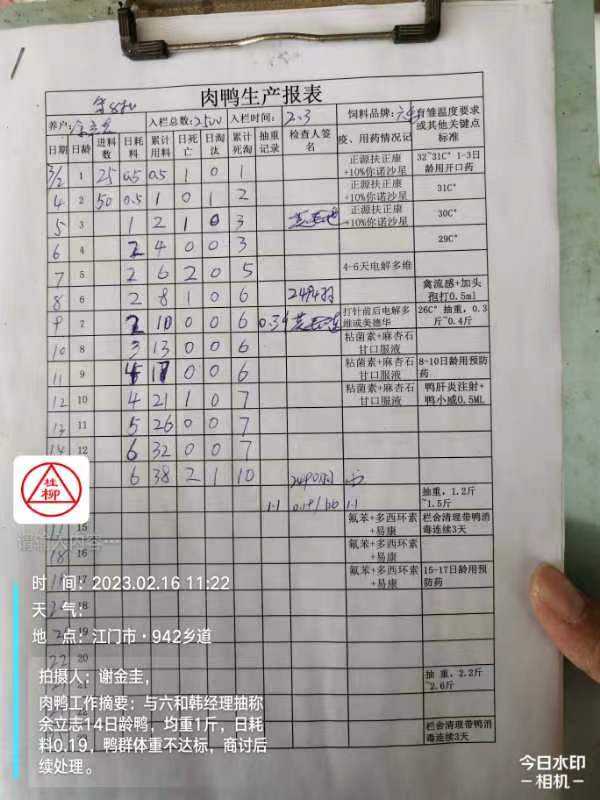 肉鸭生产报表
养户: 入栏总数:2500 入栏时间: 2.3 饲料品牌: 六和
有雏温度要求或其他关键点标准
日期 日龄 进料数 日耗料 累计用料 日死亡 日淘汰 累计死淘 抽重记录 检查人签名 疫、用药情况记
3/2 1 25 0.5 0.5 1 0 1 正源扶正康+10%你诺沙星 32~31C° 1-3日龄用开口药
4 2 50 0.5 1 0 1 2 正源扶正康+10%你诺沙星 31C°
5 3 1 2 1 0 3 正源扶正康+10%你诺沙星 30C°
6 4 2 4 0 0 3 29C°
7 5 2 6 2 0 5 4-6天电解多维
8 6 2 8 1 0 6 2494羽 禽流感+加头孢打0.5ml
9 7 2 10 0 0 6 打针前后电解多维或美德华 26C° 抽重，0.3斤~0.4斤
10 8 3 13 0 0 6 粘菌素+麻杏石甘口服液
11 9 17 0 0 6 粘菌素+麻杏石甘口服液 8-10日龄用预防药
12 10 4 21 1 0 7 粘菌素+麻杏石甘口服液 鸭肝炎注射+鸭小感0.5ML
13 11 5 26 0 0 7
14 12 6 32 0 0 7
6 38 2 1 10 2490羽
1.1 1.1 抽重，1.2斤~1.5斤
15 氟苯+多西环素+易康 栏舍清理带鸭消毒连续3天
18 16 氟苯+多西环素+易康
17 氟苯+多西环素+易康 15-17日龄用预防药
18
19
20
抽 重，2.2斤~2.6斤
栏舍清理带鸭消毒连续3天
桂柳
请输入内容…
时 间：2023.02.16 11:22
天 气：
地 点：江门市·942乡道
拍摄人：谢金圭，
肉鸭工作摘要：与六和韩经理抽称
余立志14日龄鸭，均重1斤，日耗
料0.19，鸭群体重不达标，商讨后
续处理。
今日水印
-相机-